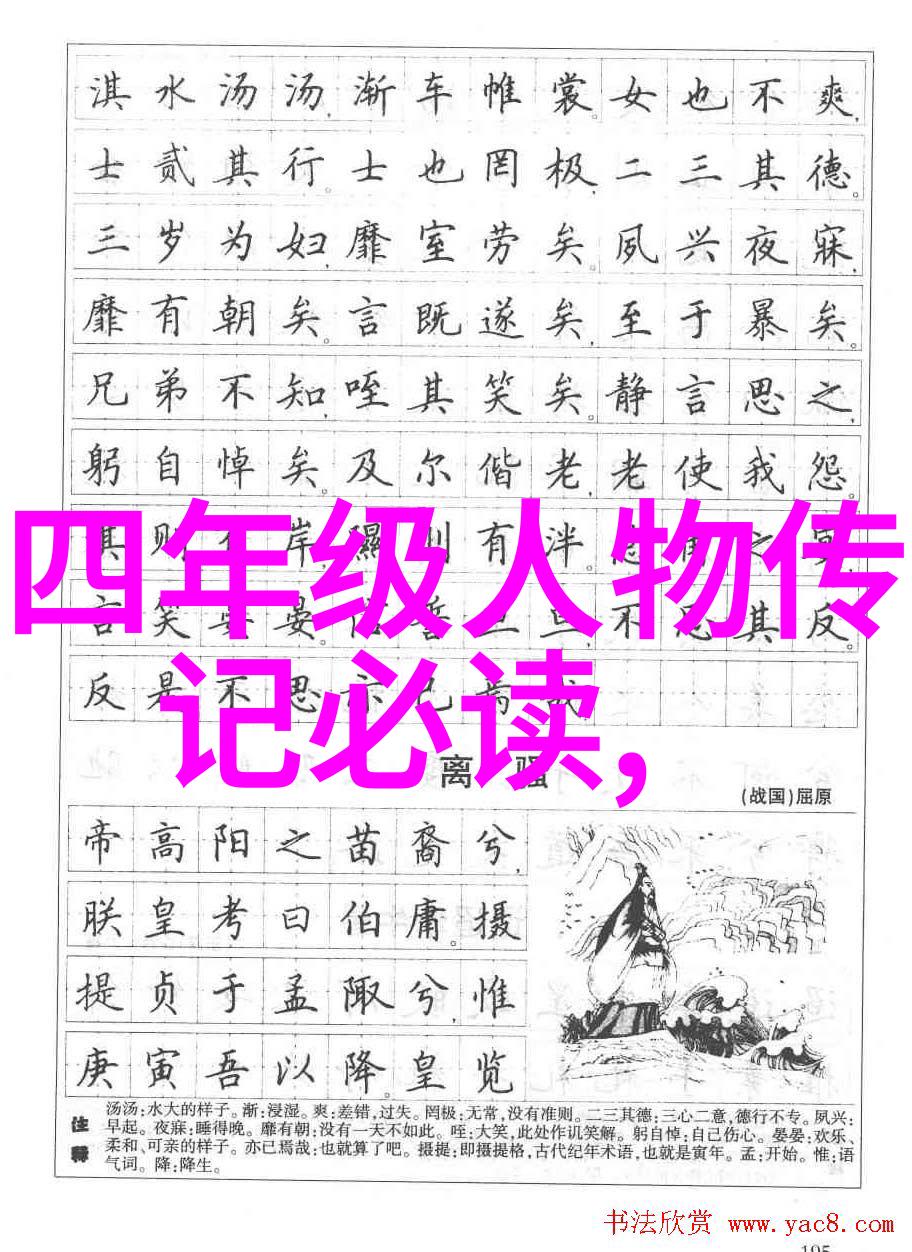 淇水汤汤,渐车帷裳。女也不爽,
士贰其行。士也罔极,二三其德。
三岁为妇,靡室劳矣。夙兴夜寐,
靡有朝矣。言既遂矣,至于暴矣。
兄弟不知,咥其笑矣。静言思之,
躬自悼矣。及尔偕老,老使我怨。
四年级人物传
有泮。
言笑晏晏。不思其反。
反是不思
记必读,
离骚
(战国)屈原
帝高阳之苗裔兮,
朕皇考曰伯庸。摄
提贞于孟陬兮,惟
庚寅吾以降。皇览
注释
汤汤:水大的样子。渐:浸湿。爽:差错,过失。罔极:无常,没有准则。二三其德:三心二意,德行不专。夙兴:
早起。夜寐:睡得晚。靡有朝:没有一天不如此。咥:大笑,此处作讥笑解。躬自悼:自己伤心。晏晏:欢乐、
柔和、可亲的样子。亦已焉哉:也就算了吧。摄提:即摄提格,古代纪年术语,也就是寅年。孟:开始。惟:语
气词。降:降生。
书法欣赏 www.yac8.com
105